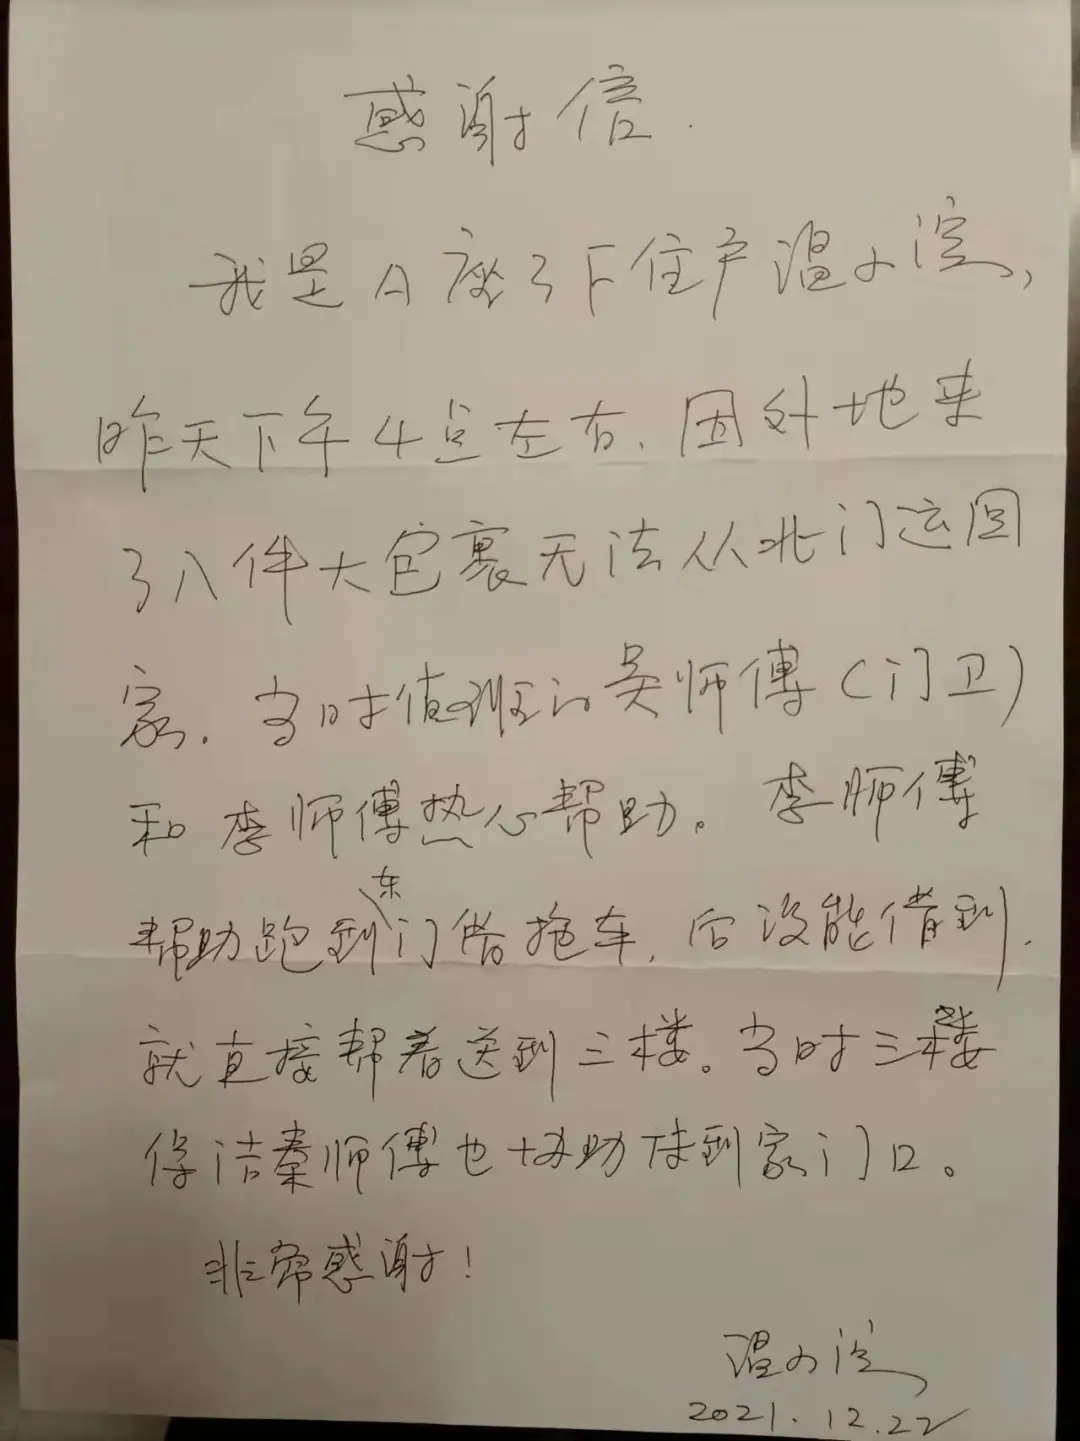 感谢信.
我是A座3F住户温小淀,
昨天下午4点左右,因外地来
了八件大包裹无法从北门运回
家.当时值班的吴师傅(门卫)
和李师傅热心帮助。李师傅
帮助跑到东门借拖车,后没能借到.
就直接帮着送到三楼。当时三楼
保洁秦师傅也协助送到家门口。
非常感谢!
温小淀
2021.12.22